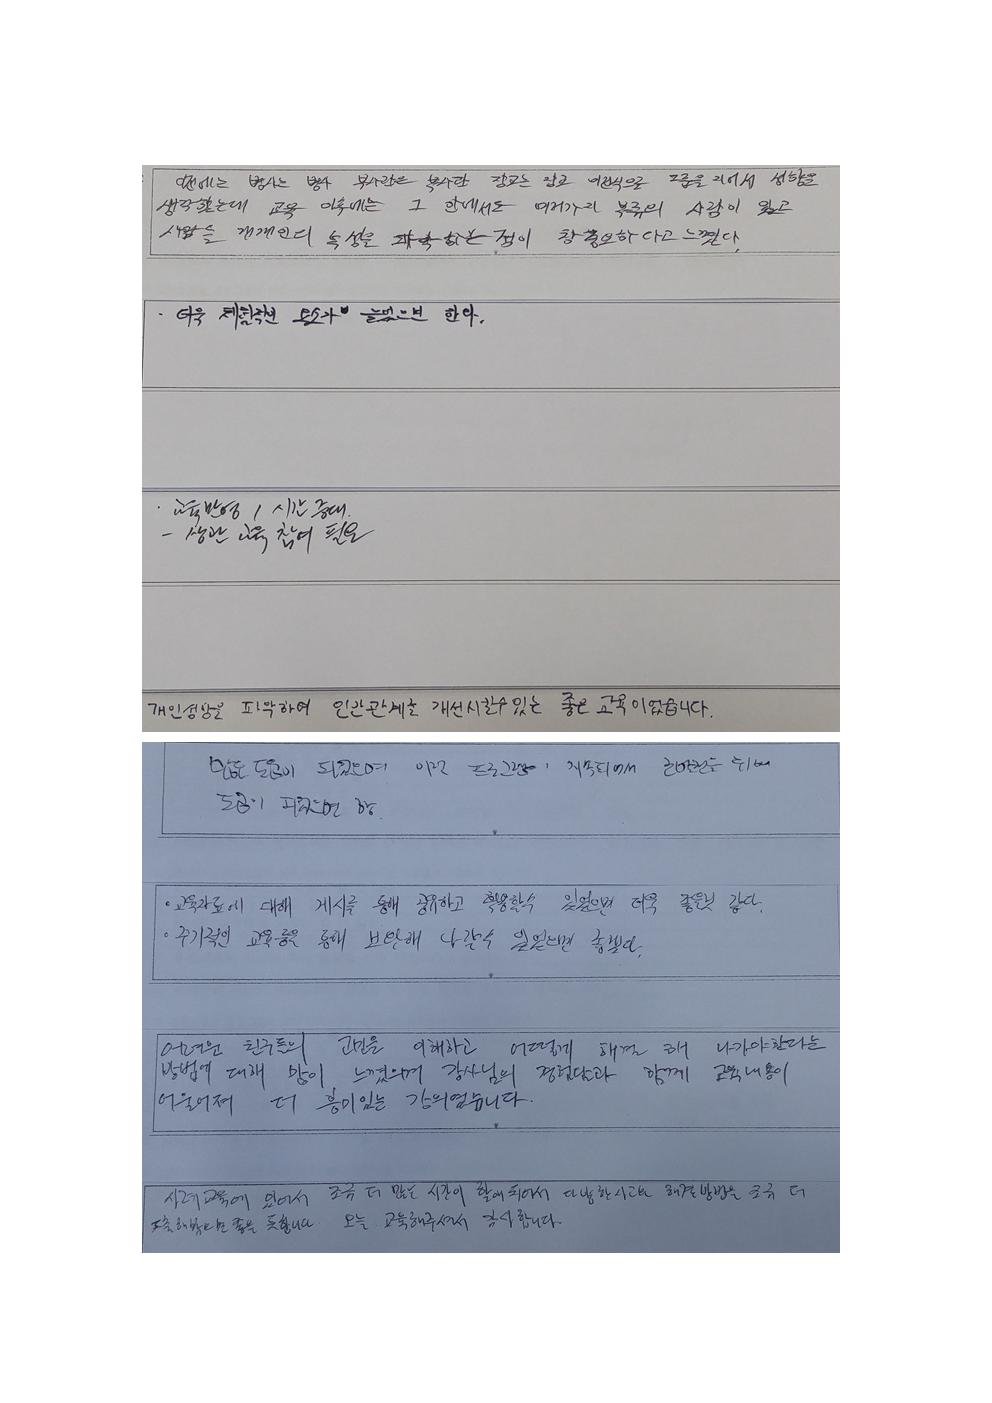 전에는 병사는 병사 부사관은 부사관 장교는 장교 이런식으로 그룹을 지어서 성향을
생각했는데 교육 이후에는 그 안에서도 여러가지 부류의 사람이 있고
사람들 개개인의 특성을 파악하는 점이 참 중요하다고 느꼈다.
· 더욱 체험적인 요소가 늘었으면 한다.
· 교육반영 / 시간 증대.
- 상관 교육 참여 필요
개인성향을 파악하여 인간관계를 개선시킬수있는 좋은 교육이었습니다.
많은 도움이 되었으며 이런 프로그램이 계속되어서
도움이 되었으면 함.
· 교육자료에 대해 게시를 통해 공유하고 활용할수 있었으면 더욱 좋을것 같다.
· 주기적인 교육등을 통해 보완해 나갈수 있었으면 좋겠다.
어려운 친구들의 고민을 이해하고 어떻게 해결해 나가야한다는
방법에 대해 많이 느꼈으며 강사님의 경험담과 함께 교육내용이
어우러져 더 흥미있는 강의였습니다.
사례교육에 있어서 조금 더 많은 시간이 할애되어서 다양한 사고와 해결방법을 조금 더
도출해봤으면 좋을 듯합니다 오늘 교육해주셔서 감사합니다.